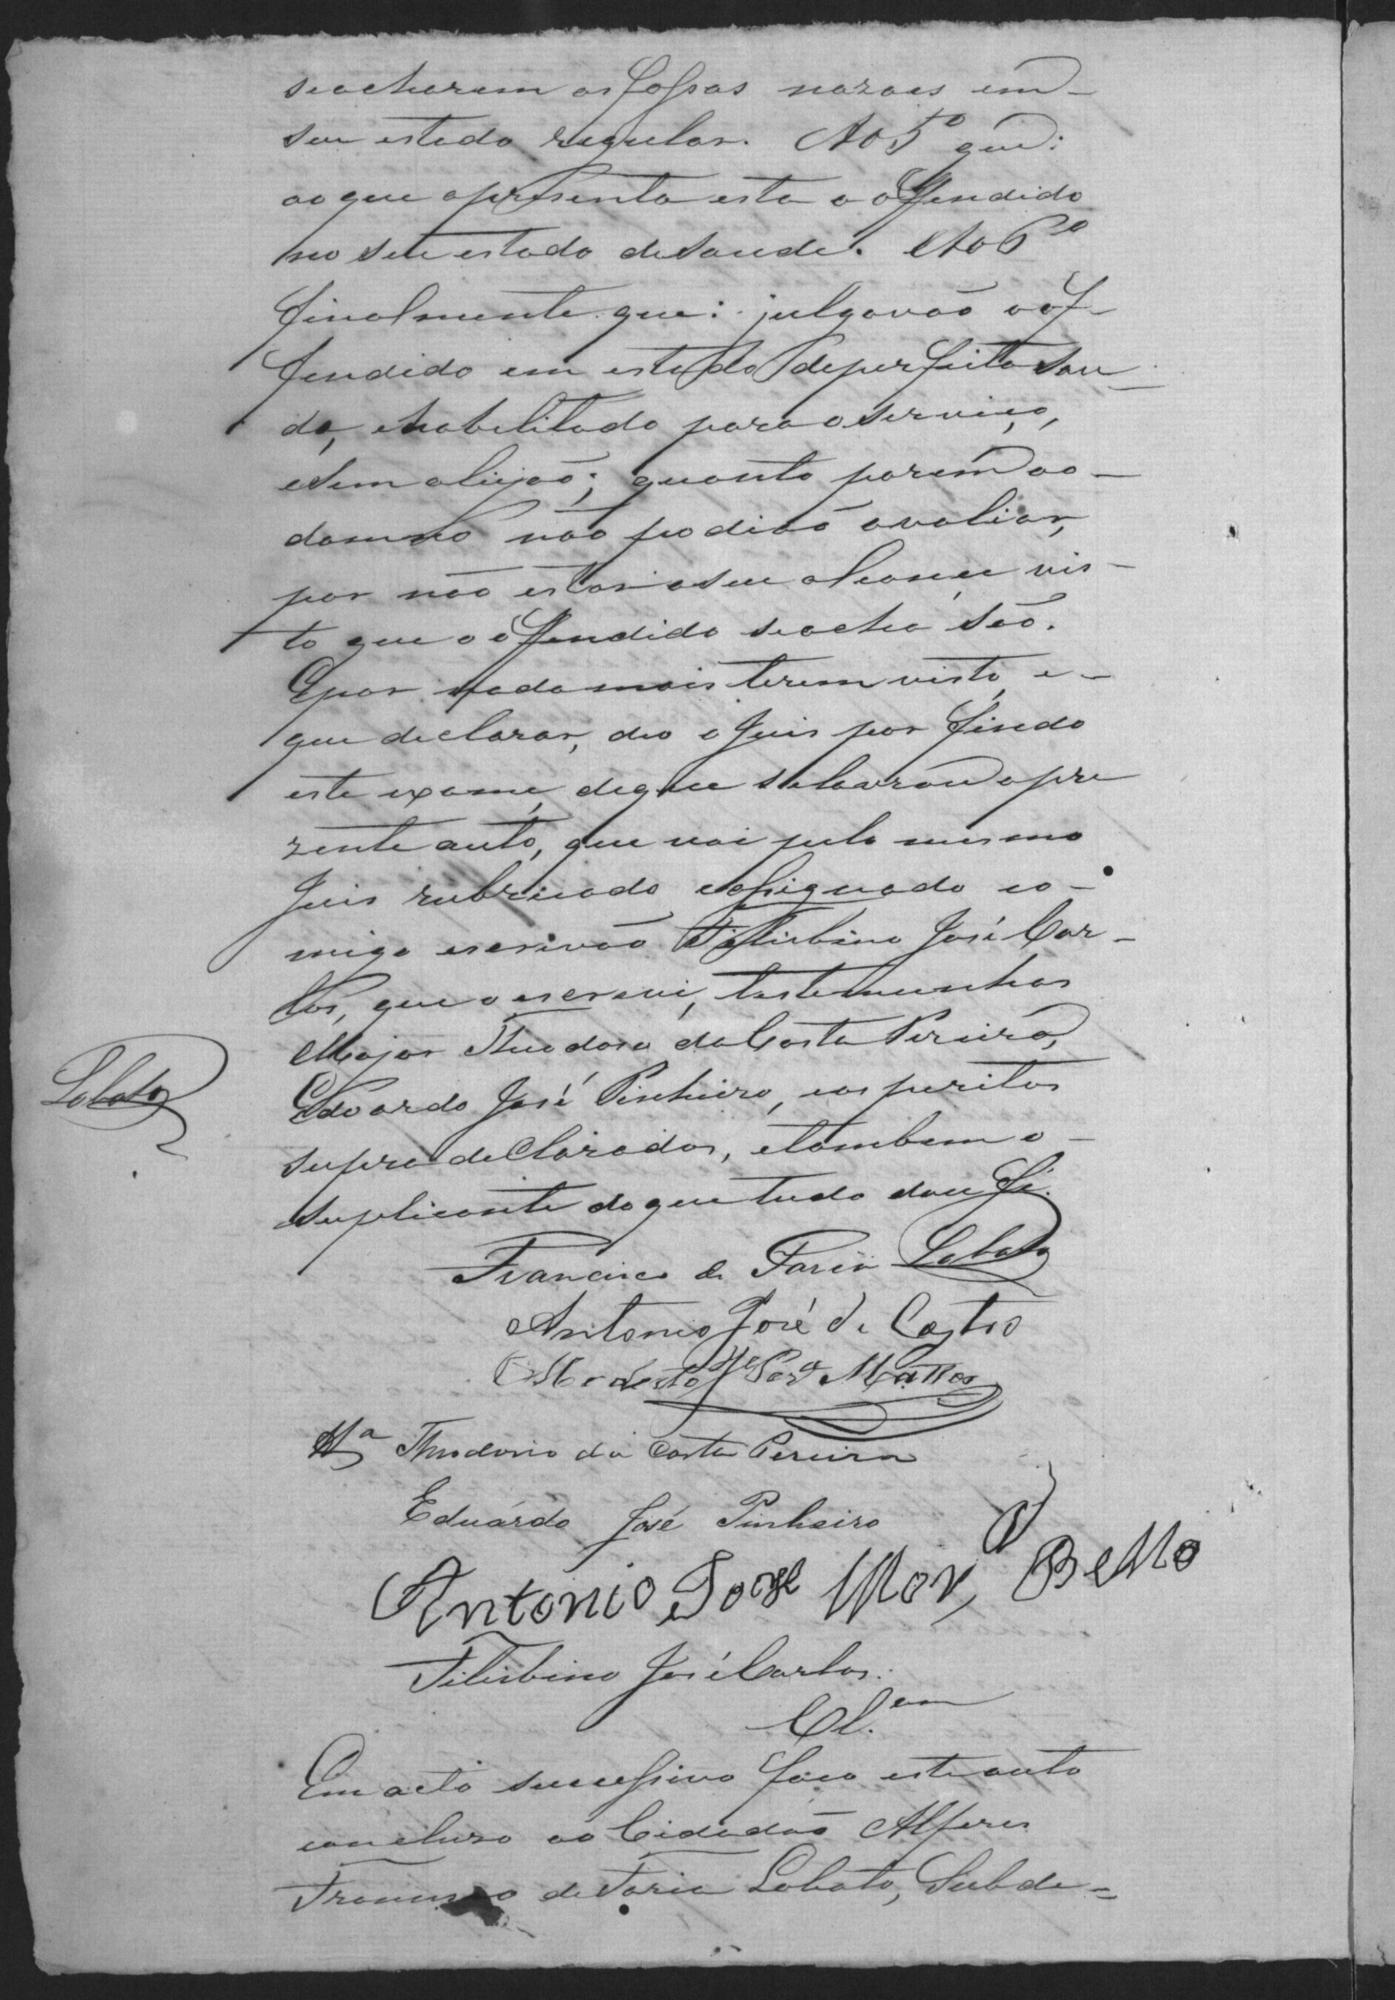 se acharem as fossas nazaes em
seu estado regular. Ao 5º que:
ao que apresenta esta o offendido
no seu estado de saude. Ao 6º
finalmente que: julgavão o of-
fendido em estado de perfeita sau-
de, e habilitado para o serviço,
e sem alijão; quanto porem ao
damno não podião avaliar,
por não estar a seu alcance, vis-
to que o offendido se acha são.
E por nada mais terem visto, e
que declarar, deo o Juis por findo
este exame, de que se lavrou o pre
zente auto, que vai pelo mesmo
Juis rubricado e assignado co-
migo escrivão Filisbino José Car-
los, que o escrevi, testemunhas
Major Theodoro da Costa Pereira,
Eduardo José Pinheiro, e os peritos
supra declarados, e tambem o
suplicante do que tudo dou fé.
Lobato
Francisco de Faria Lobato
Antonio José de Castro
Modesto Je Perª Mattos
Theodorio da Costa Pereira
Eduardo José Pinheiro
Antonio José Mor.ª Bello
Filisbino José Carlos.
Cl.am
Em acto successivo faço este auto
concluso ao Cidadão Alferes
Francisco de Faria Lobato, Subde=